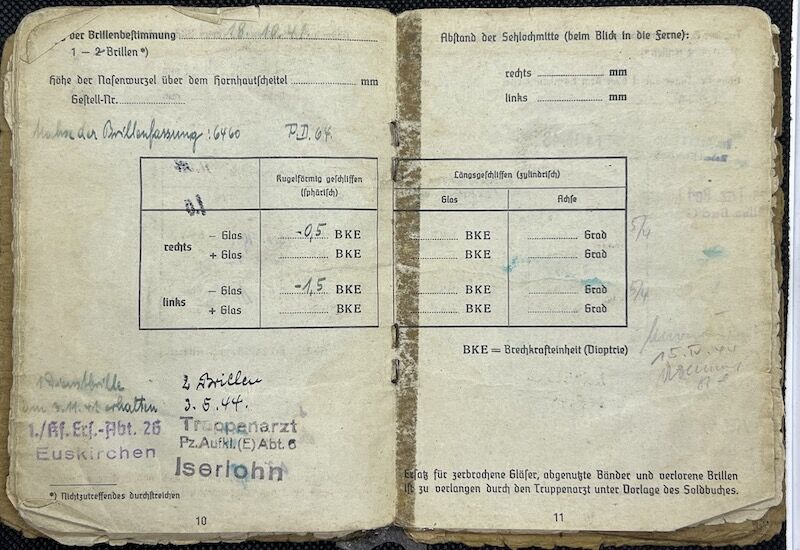 der Brillenbestimmung 18.10.41.
1 — 2 Brillen *)
Höhe der Nasenwurzel über dem Hornhautscheitel mm
Gestell-Nr.
Masse der Brillenfassung: 6460 P.D. 64.
Kugelförmig geschliffen
(sphärisch)
rechts
— Glas -0,5 BKE
+ Glas BKE
links
— Glas -1,5 BKE
+ Glas BKE
1 Dienstbrille
am 3.11.41 erhalten
1./Kf. Ers.-Abt. 26
Euskirchen
2 Brillen
3.5.44.
Truppenarzt
Pz.Aufkl.(E) Abt. 6
Iserlohn
*) Nichtzutreffendes durchstreichen
10
Abstand der Sehlochmitte (beim Blick in die Ferne):
rechts mm
links mm
Längsgeschliffen (zylindrisch)
Glas Achse
BKE Grad 5/4
BKE Grad
BKE Grad 5/4
BKE Grad
BKE = Brechkrafteinheit (Dioptrie)
15.IV.44
Ersatz für zerbrochene Gläser, abgenutzte Bänder und verlorene Brillen
ist zu verlangen durch den Truppenarzt unter Vorlage des Soldbuches.
11